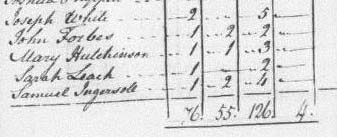 Joseph White 2 5
John Forbes 1 2 2
Mary Hutchinson 1 1 3
Sarah Leach 1 2
Samuel Ingersole 1 2 4
76. 55. 126 4.